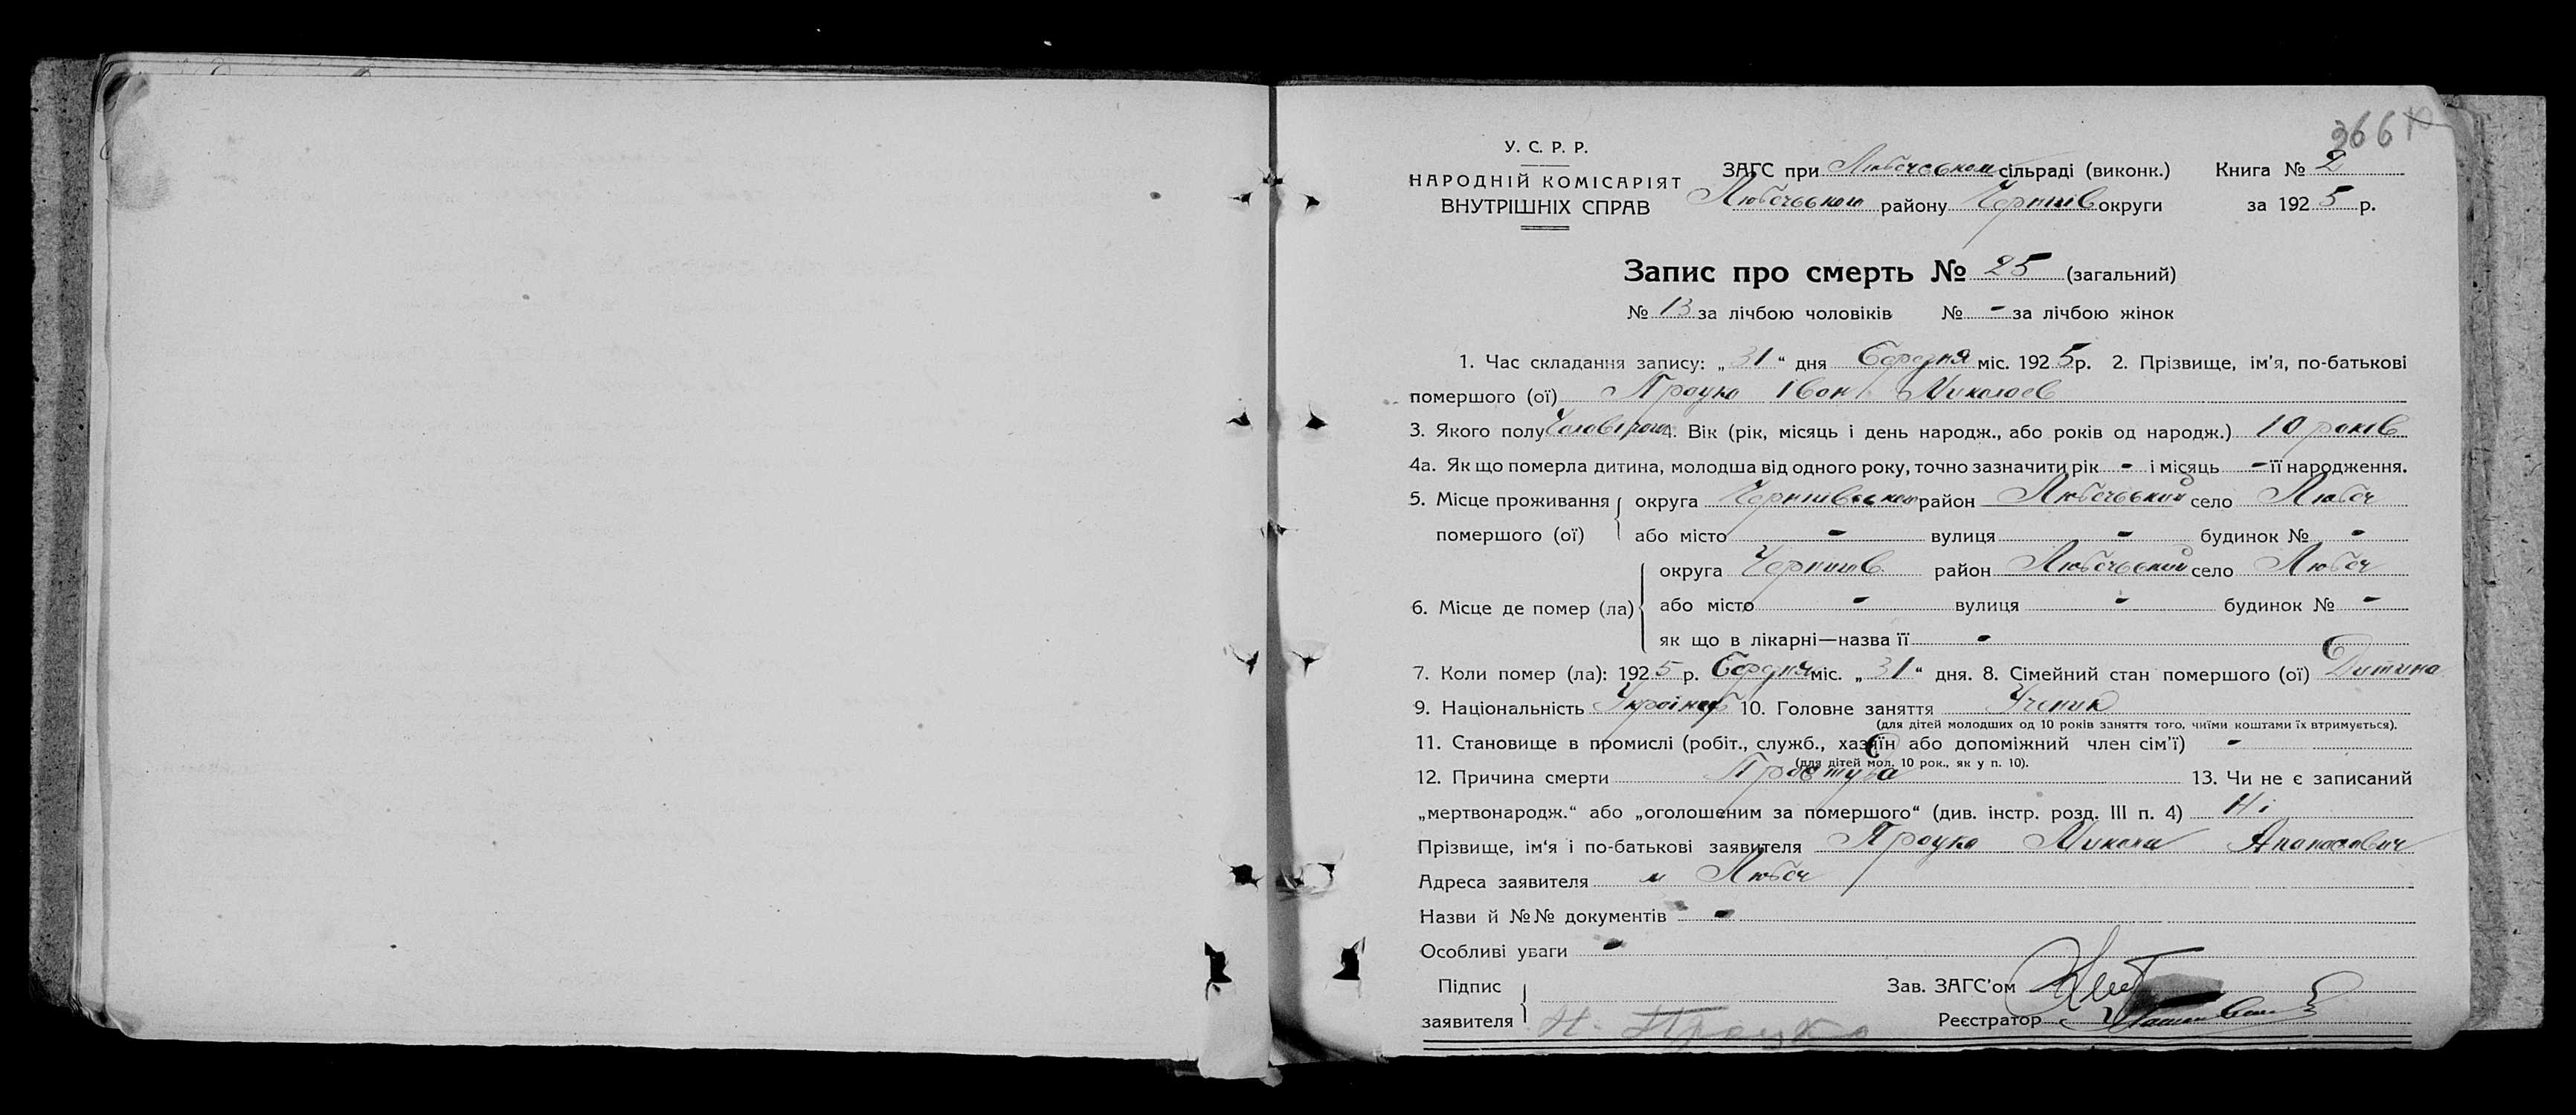 366
У. С. Р. Р.
НАРОДНІЙ КОМІСАРІЯТ
ВНУТРІШНІХ СПРАВ
ЗАГС при Любечськом сільраді (виконк.) Книга № 2
Любечського району Чернігів округи за 1925 р.
Запис про смерть № 25 (загальний)
№ 13 за лічбою чоловіків № - за лічбою жінок
1. Час складання запису: „31“ дня Березня міс. 1925 р. 2. Прізвище, ім’я, по-батькові
помершого (ої) Процко Іван Миколаєв
3. Якого полу Чоловічого 4. Вік (рік, місяць і день народж., або років од народж.) 10 років
4а. Як що померла дитина, молодша від одного року, точно зазначити рік - і місяць - її народження.
5. Місце проживання округа Чернігівськом район Любечський село Любеч
помершого (ої) або місто - вулиця - будинок № -
округа Чернігів район Любечський село Любеч
6. Місце де помер (ла) або місто - вулиця - будинок № -
як що в лікарні—назва її -
7. Коли помер (ла): 1925 р. Березня міс. „31“ дня. 8. Сімейний стан помершого (ої) Дитина
9. Національність Українец 10. Головне заняття Ученик
(для дітей молодших од 10 років заняття того, чиїми коштами їх втримується).
11. Становище в промислі (робіт., служб., хазяїн або допоміжний член сім’ї) -
(для дітей мол. 10 рок., як у п. 10).
12. Причина смерти Простуда 13. Чи не є записаний
„мертвонародж.“ або „оголошеним за помершого“ (див. інстр. розд. III п. 4) Ні
Прізвище, ім‘я і по-батькові заявителя Процко Микола Апанасович
Адреса заявителя м Любеч
Назви й №№ документів -
Особливі уваги -
Підпис
заявителя Н. Процко
Зав. ЗАГС’ом
Реєстратор